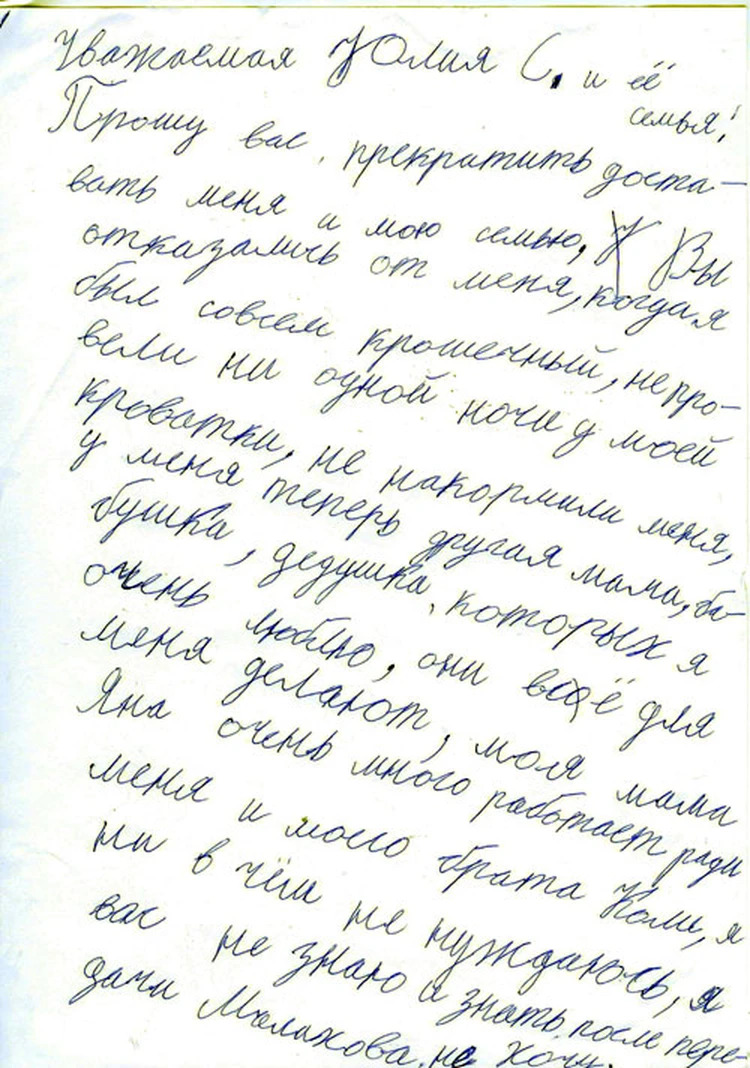 Уважаемая Юлия С. и её
семья!
Прошу вас, прекратить доста-
вать меня и мою семью, Вы
отказались от меня, когда я
был совсем крошечный, не про-
вели ни одной ночи у моей
кроватки, не накормили меня,
у меня теперь другая мама, ба-
бушка, дедушка, которых я
очень люблю, они всё для
меня делают, моя мама
Яна очень много работает ради
меня и моего брата Коли, я
ни в чём не нуждаюсь, я
вас не знаю и знать после пере-
дачи Малахова, не хочу.